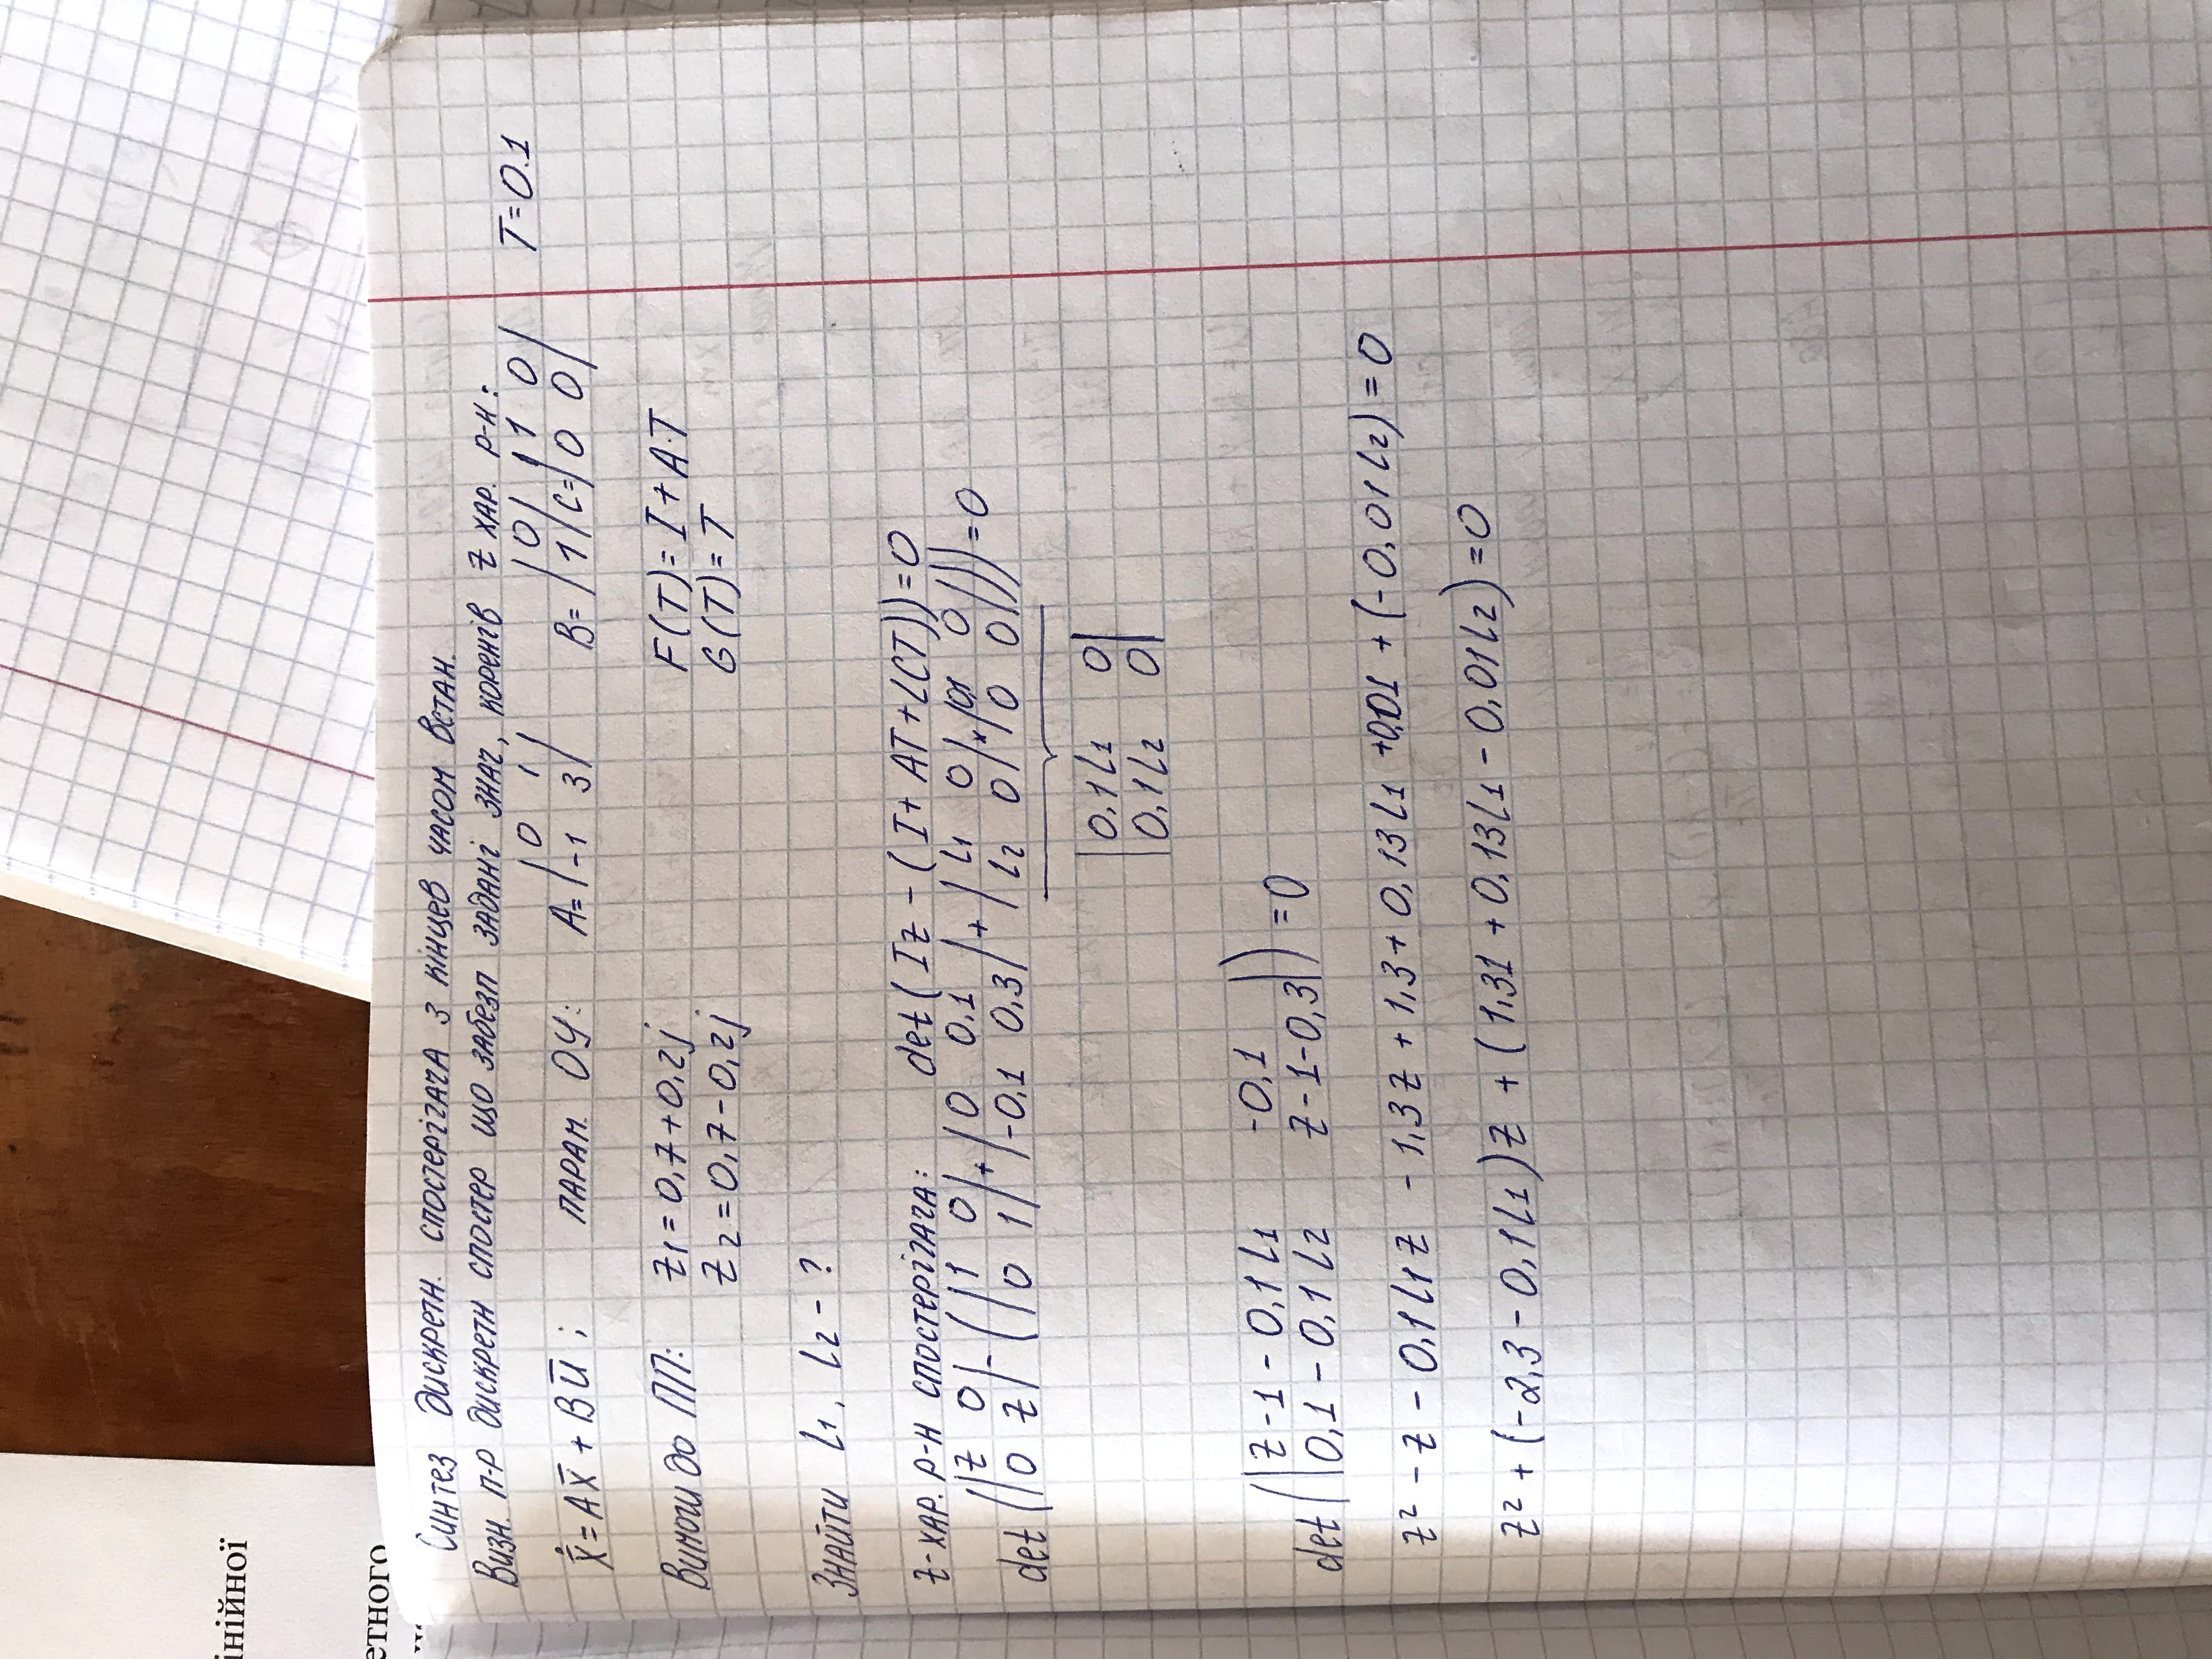 інійної
етного
Синтез дискретн. спостерігача з кінцев часом встан.
Визн. п-р дискретн спостер що забезп задані знач, коренів Z хар. р-н:
T=0.1
ẋ = Ax̄ + Bū ; парам. ОУ: A= |0 1| B= |0| C= |1 0|
|-1 3| |1| |0 0|
Вимоги до ПП: Z1 = 0,7+0,2j F(T)= I+A·T
Z2 = 0,7-0,2j G(T)= T
Знайти l1, l2 - ?
Z-хар. р-н спостерігача: det(Iz - (I + AT + LCT)) = 0
det(|z 0| - (|1 0| + |0 0,1| + |l1 0| × |0,1 0|)) = 0
|0 z| |0 1| |-0,1 0,3| |l2 0| |0 0|
|0,1l1 0|
|0,1l2 0|
det(|z-1-0,1l1 -0,1|) = 0
|0,1-0,1l2 z-1-0,3|
z² - z - 0,1l1z - 1,3z + 1,3 + 0,13l1 + 0,01 + (-0,01l2) = 0
z² + (-2,3 - 0,1l1)z + (1,31 + 0,13l1 - 0,01l2) = 0